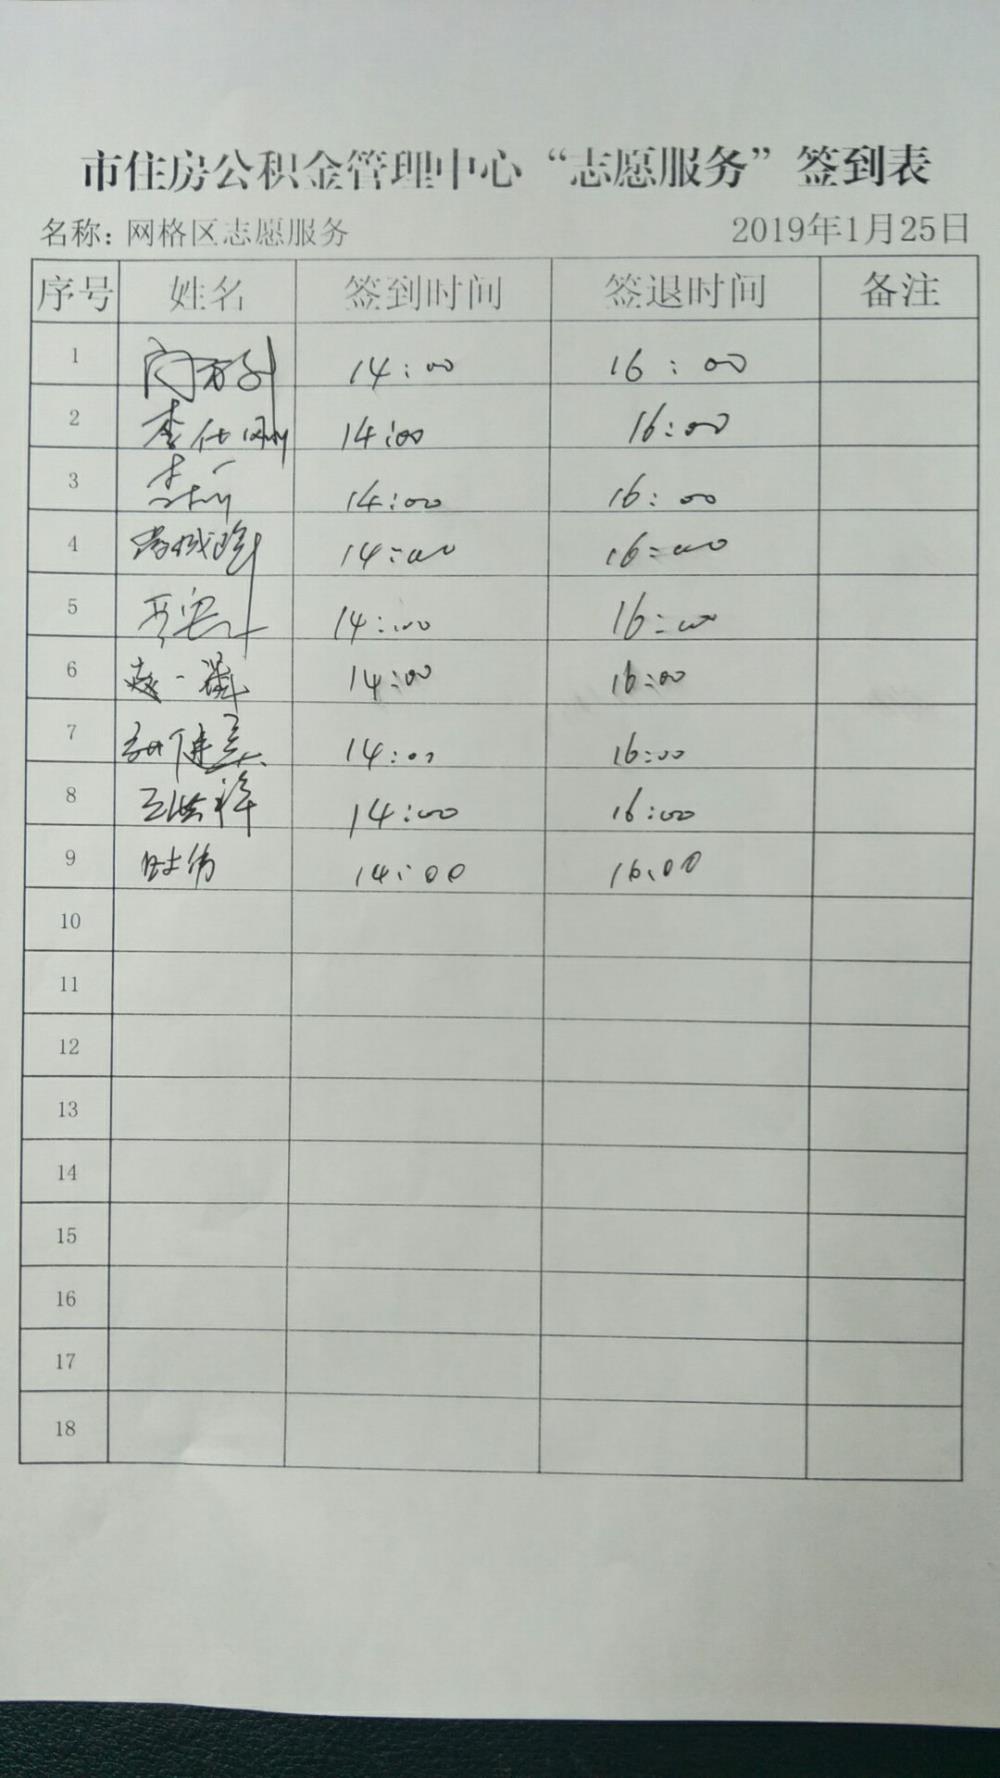 市住房公积金管理中心“志愿服务”签到表
名称：网格区志愿服务 2019年1月25日
序号 姓名 签到时间 签退时间 备注
1 14:00 16:00
2 李仕刚 14:00 16:00
3 14:00 16:00
4 14:00 16:00
5 14:00 16:00
6 14:00 16:00
7 14:00 16:00
8 王洪祥 14:00 16:00
9 时伟 14:00 16:00
10
11
12
13
14
15
16
17
18